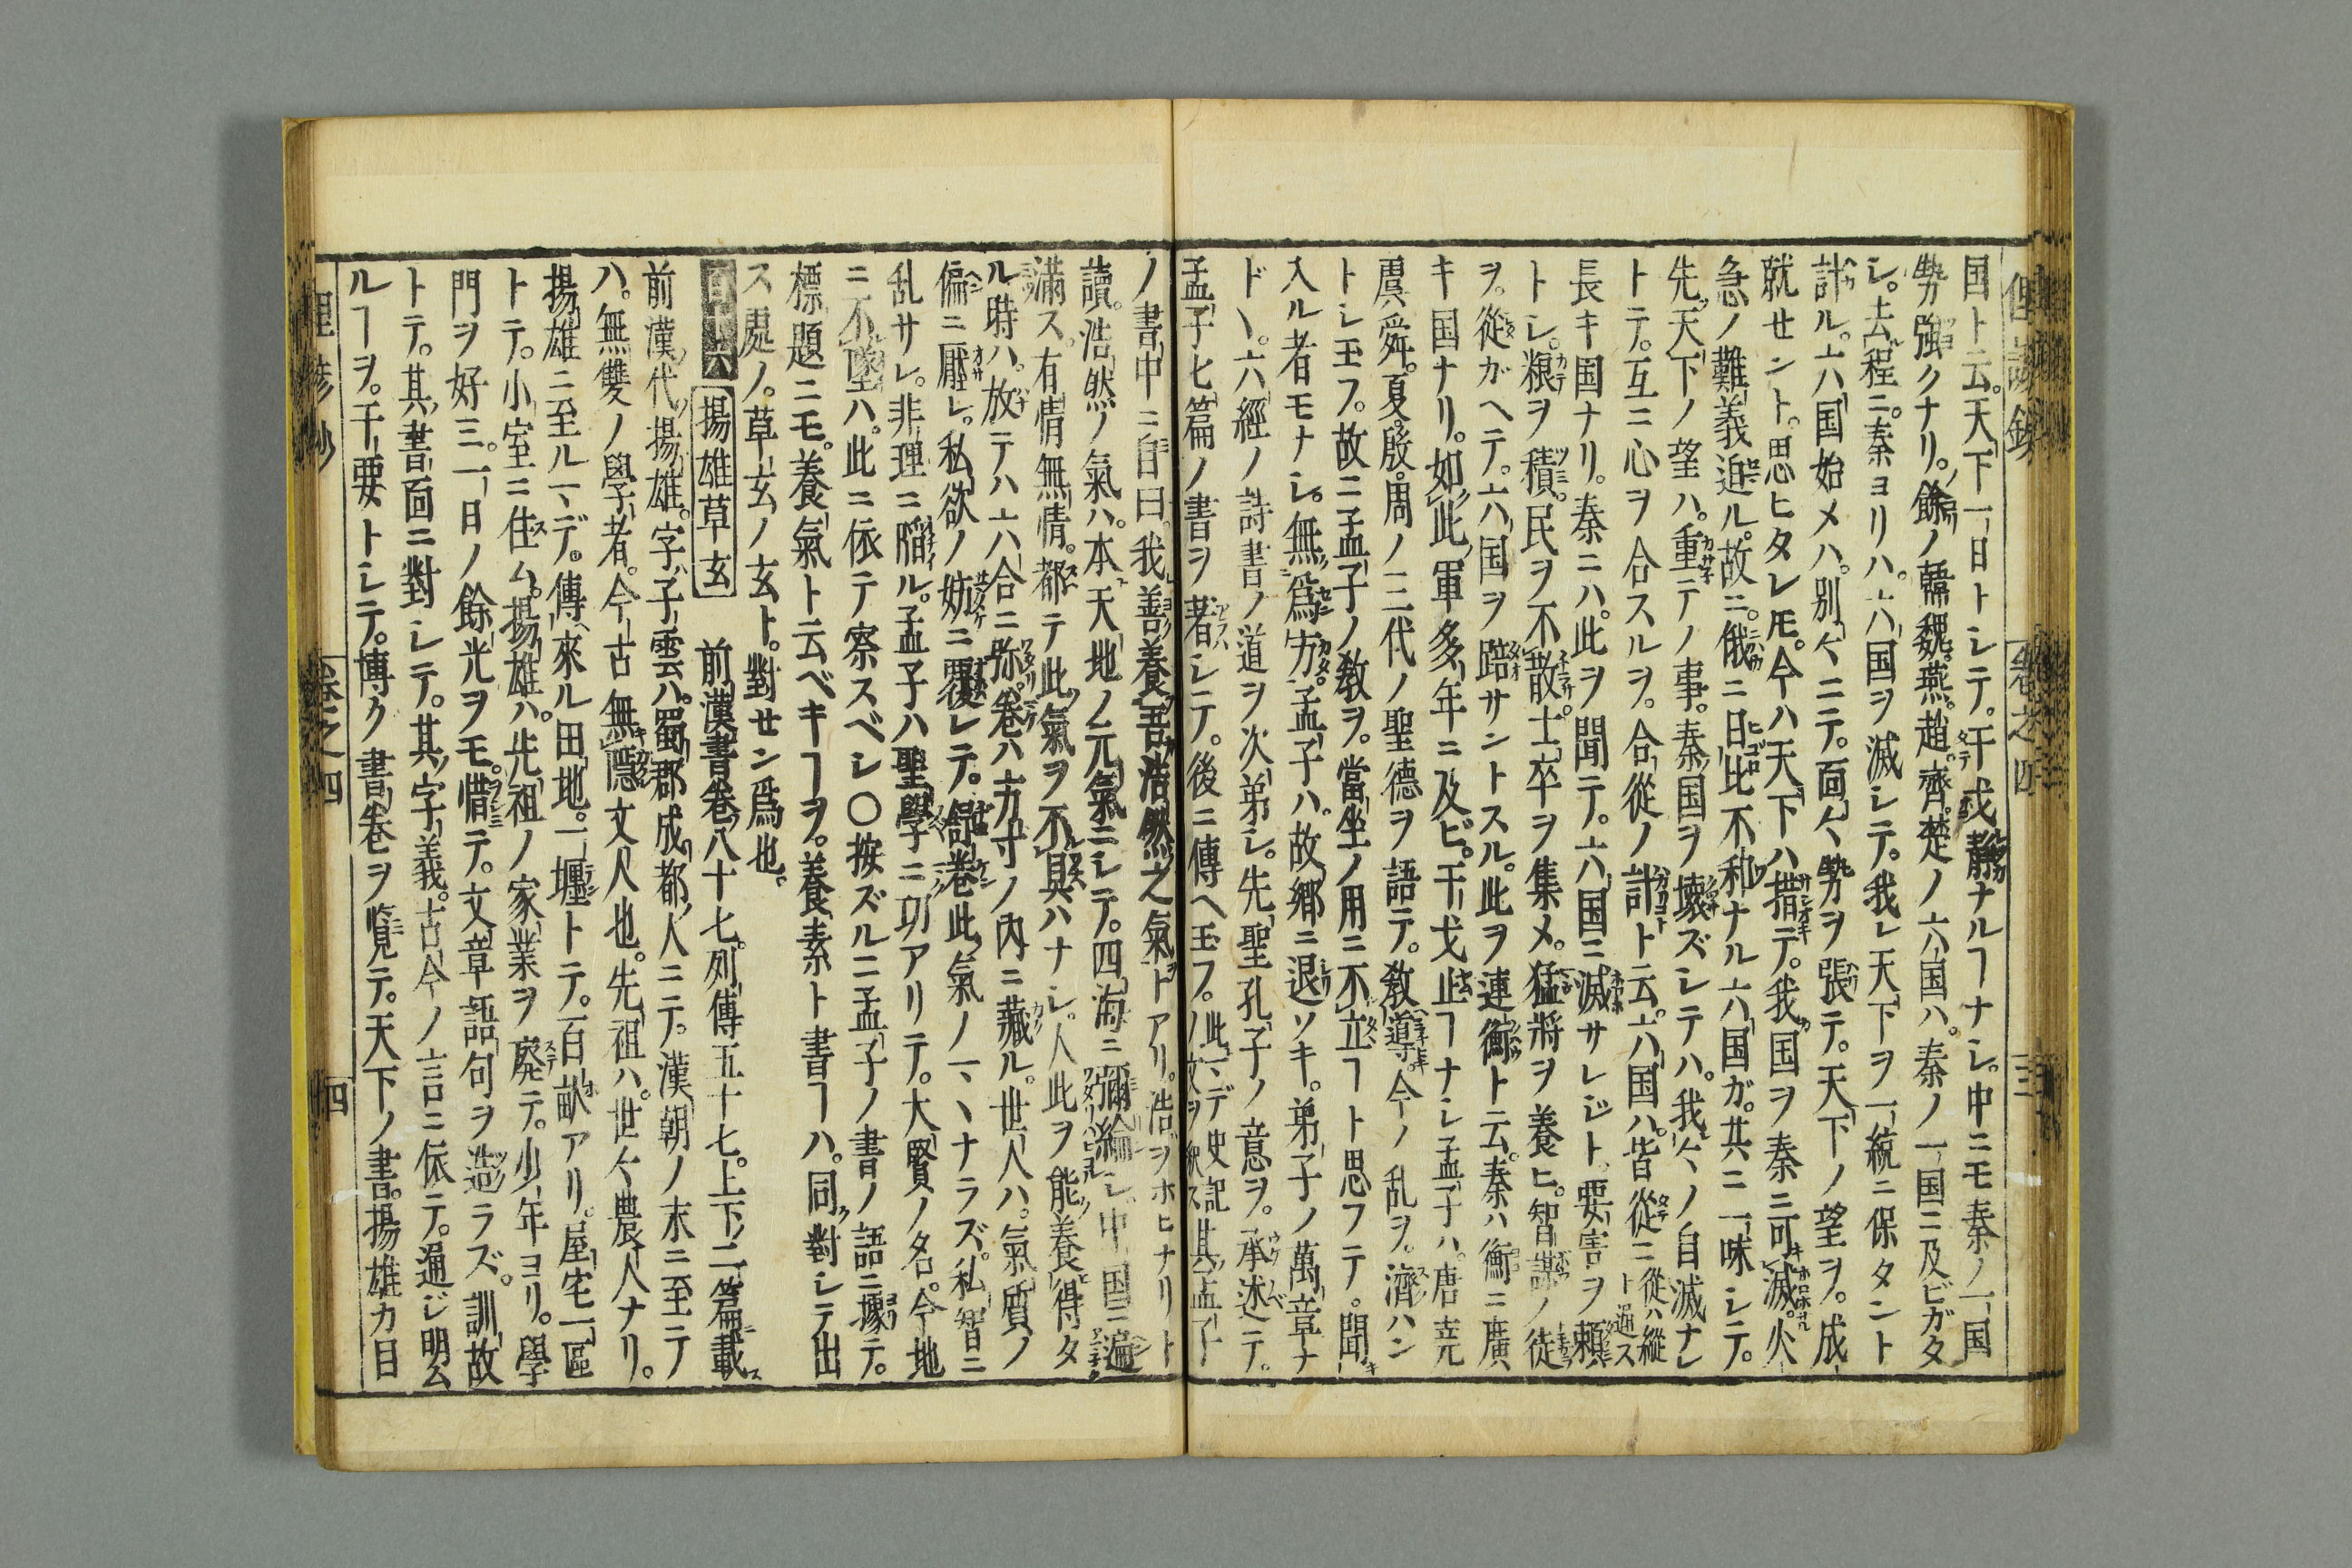 国ト云。天下一日トシテ。干戈静ナルヿナシ。中ニモ秦ノ一国
勢強クナリ。餘ノ韓魏。燕。趙。齊。楚ノ六国ハ。秦ノ一国ニ及ビガタ
シ。去程ニ。秦ヨリハ。六国ヲ滅シテ。我レ天下ヲ一統ニ保タント
計ル。六国始メハ。別々ニテ。面々勢ヲ張テ。天下ノ望ヲ。成
就セント。思ヒタレ𪜈。今ハ天下ハ措テ。我国ヲ秦ニ可滅。火
急ノ難義迫ル。故ニ。俄ニ日比不和ナル六国ガ。其ニ一味シテ。
先天下ノ望ハ。重テノ事。秦国ヲ壊ズシテハ。我々ノ自滅ナレ
トテ。互ニ心ヲ合スルヲ。合從ノ計ト云。六国ハ。皆從ニ從ハ縱ト通ス
長キ国ナリ。秦ニハ。此ヲ聞テ。六国ニ滅サレジト。要害ヲ頼
トシ。粮ヲ積。民ヲ不散。士卒ヲ集メ。猛將ヲ養ヒ。智謀ノ徒
ヲ。從ガヘテ。六国ヲ踣サントスル。此ヲ連衡ト云。秦ハ衡ニ廣
キ国ナリ。如此軍多年ニ及ビ。干戈止ヿナシ孟子ハ。唐堯
虞舜。夏。殷。周ノ三代ノ聖德ヲ語テ。敎導。今ノ乱ヲ。濟ハン
トシ玉フ。故ニ孟子ノ敎ヲ。當坐ノ用ニ不立ヿト思フテ。聞
入ル者モナシ。無為方。孟子ハ。故郷ニ退ソキ。弟子ノ萬章ナ
ド丶。六經ノ詩書ノ道ヲ次第シ。先聖孔子ノ意ヲ。承述テ。
孟子七篇ノ書ヲ著シテ。後ニ傳ヘ玉フ。此丶デ史記ノ文ヲ釈ス其孟子
ノ書中ニ自曰。我善養吾浩然之氣トアリ。浩ヲホヒナリト
讀。浩然ノ氣ハ。本天地ノ元氣ニシテ。四海ニ彌綸シ。中国ニ遍
滿ス。有情無情。都テ此氣ヲ不具ハナシ。人此ヲ能養得タ
ル時ハ。放テハ六合ニ弥。卷ハ方寸ノ内ニ藏ル。世人ハ。氣質ノ
偏ニ壓レ。私欲ノ妨ニ覆レテ。舒卷此氣ノ一丶ナラズ。私智ニ
乱サレ。非理ニ陥ル。孟子ハ聖學ニ功アリテ。大賢ノ名。今地
ニ不墜ハ。此ニ依テ察スベシ〇按ズルニ孟子ノ書ノ語ニ據テ。
標題ニモ。養氣ト云ベキヿヲ。養素ト書ヿハ。同對シテ出
ス處ノ。草玄ノ玄ト。對セン爲也。
百十六 揚雄草玄 前漢書卷八十七。列傳五十七。上下ノ二篇載ス
前漢代揚雄。字子雲ハ。蜀郡成都人ニテ。漢朝ノ末ニ至テ
ハ。無雙ノ學者。今古無隱文人也。先祖ハ。世々農人ナリ。
揚雄ニ至ル丶デ。傳來ル田地。一㙻トテ。百畝アリ。屋宅一區
トテ。小室ニ住ム。揚雄ハ。先祖ノ家業ヲ廃テ。少年ヨリ。學
門ヲ好ミ。一日ノ餘光ヲモ。惜テ。文章語句ヲ造ラズ。訓故
トテ。其書面ニ對シテ。其字義。古今ノ言ニ依テ。通ジ明ム
ルヿヲ。干要トシテ。博ク書卷ヲ覧テ。天下ノ書。揚雄カ目
卷之四 三
卷之四 四